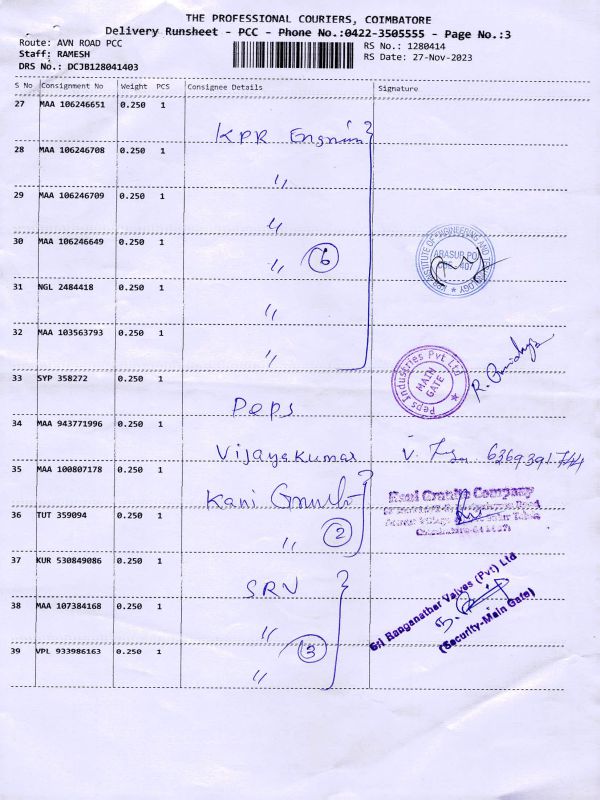 THE PROFESSIONAL COURIERS, COIMBATORE
Delivery Runsheet - PCC - Phone No.:0422-3505555 - Page No.:3
Route: AVN ROAD PCC
RS No.: 1280414
Staff: RAMESH
RS Date: 27-Nov-2023
DRS No.: DCJB128041403
S No Consignment No Weight PCS Consignee Details Signature
27 MAA 106246651 0.250 1
KPR
28 MAA 106246708 0.250 1
〃
29 MAA 106246709 0.250 1
〃
30 MAA 106246649 0.250 1
〃 6
KPR INSTITUTE OF ENGINEERING AND TECHNOLOGY
31 NGL 2484418 0.250 1
〃
32 MAA 103563793 0.250 1
〃
33 SYP 358272 0.250 1
Peps
Peps Industries Pvt Ltd
MAIN
GATE
34 MAA 943771996 0.250 1
Vijayakumar
35 MAA 100807178 0.250 1
Kani
Granite Company
36 TUT 359094 0.250 1
〃 2
37 KUR 530849086 0.250 1
SRV
38 MAA 107384168 0.250 1
〃
39 VPL 933986163 0.250 1
3
〃
Sri Ranganathar Valves (Pvt) Ltd
(Security-Main Gate)